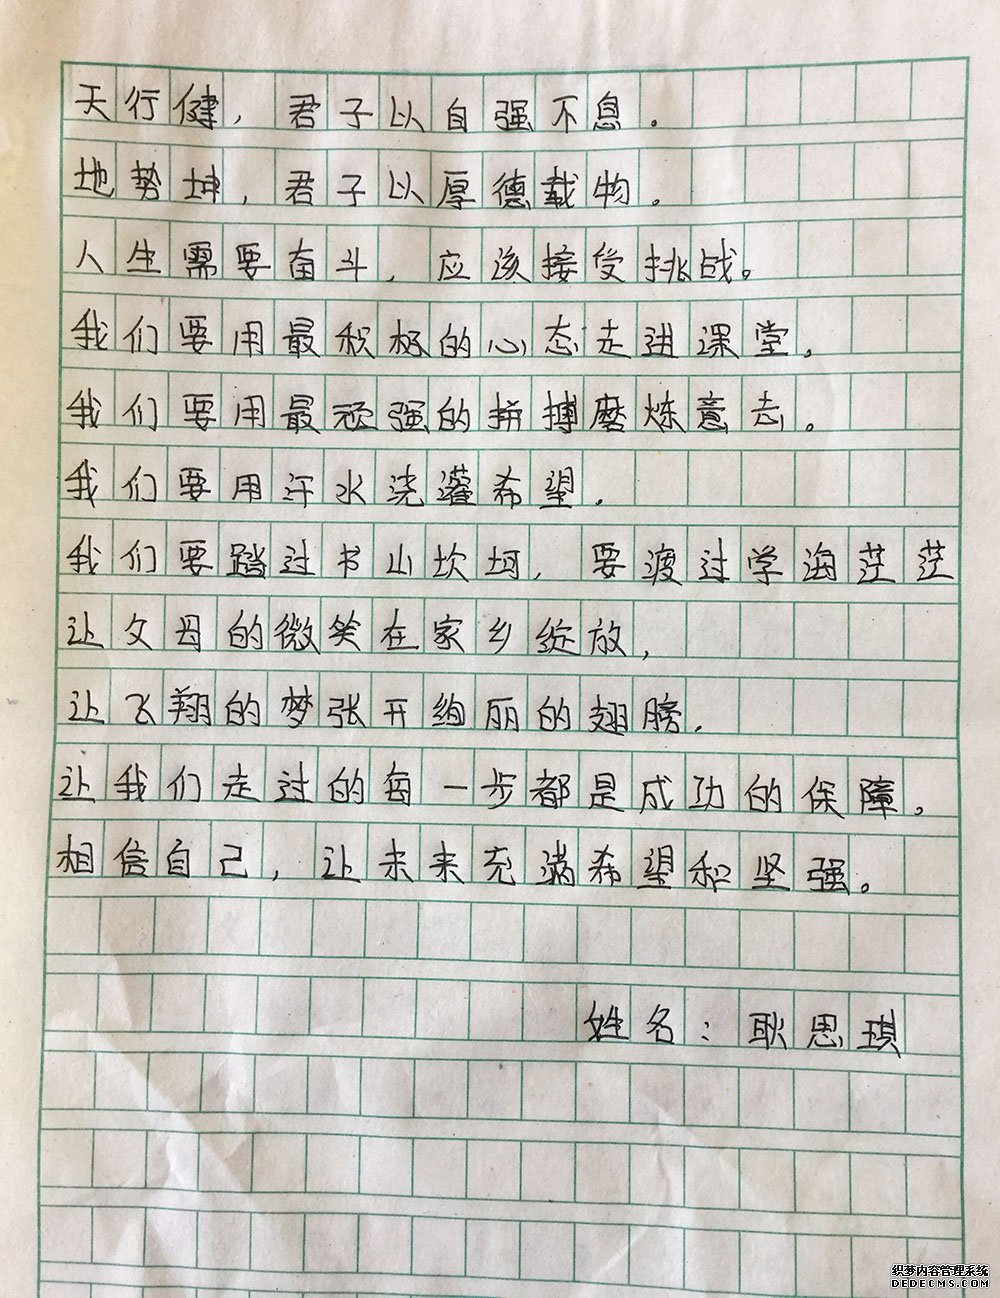 天行健，君子以自强不息。
地势坤，君子以厚德载物。
人生需要奋斗，应该接受挑战。
我们要用最积极的心态走进课堂，
我们要用最顽强的拼搏磨炼意志。
我们要用汗水浇灌希望，
我们要踏过书山坎坷，要渡过学海茫茫
让父母的微笑在家乡绽放，
让飞翔的梦张开绚丽的翅膀，
让我们走过的每一步都是成功的保障。
相信自己，让未来充满希望和坚强。
姓名：耿思琪
织梦内容管理系统
DEDECMS.COM